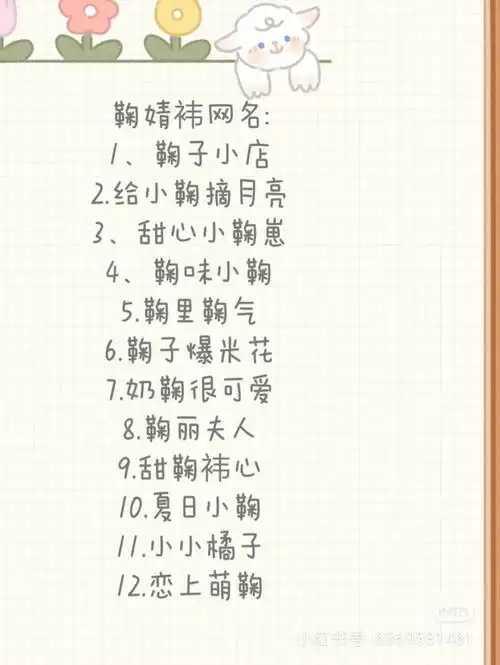 鞠婧祎网名:
1、鞠子小店
2.给小鞠摘月亮
3、甜心小鞠崽
4、鞠味小鞠
5.鞠里鞠气
6.鞠子爆米花
7.奶鞠很可爱
8.鞠丽夫人
9.甜鞠祎心
10.夏日小鞠
11.小小橘子
12.恋上萌鞠
小红书号 6369581461